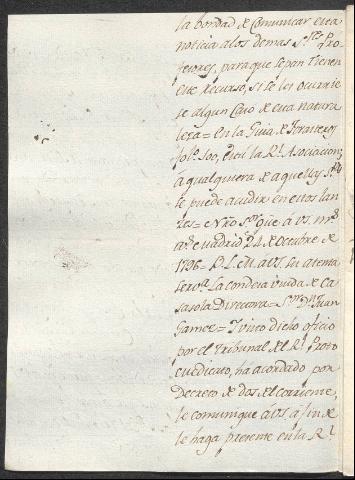 la bondad de Comunicar esta
noticia a los demas S.res Pro-
fesores, para que sepan tienen
este Recurso, si se les ocurrie
se algun Caso de esta natura
leza = En la Guia de Forasteros
fol.o 100, está la R.l Asociacion;
a qualquiera de aquellas S.ras
se puede acudir en estos lan
zes = Nro S.or gue á VS. m.s
a.s Madrid 24 de Octubre de
1796 = B. L. M. a VS. su atenta
serv.ra La Condesa viuda de Ca
sasola Directora = S.or D.n Juan
Gamez = Y visto dicho oficio
por el Tribunal del R.l Proto
medicato, ha acordado por
Decreto de dos del corriente,
se comunique á VS á fin de
se haga presente en la R.l